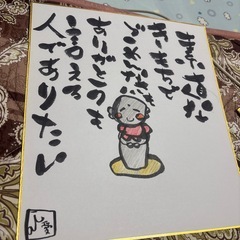 素直な
きもちで
ごめんなさい
ありがとうを
言える
人でありたい